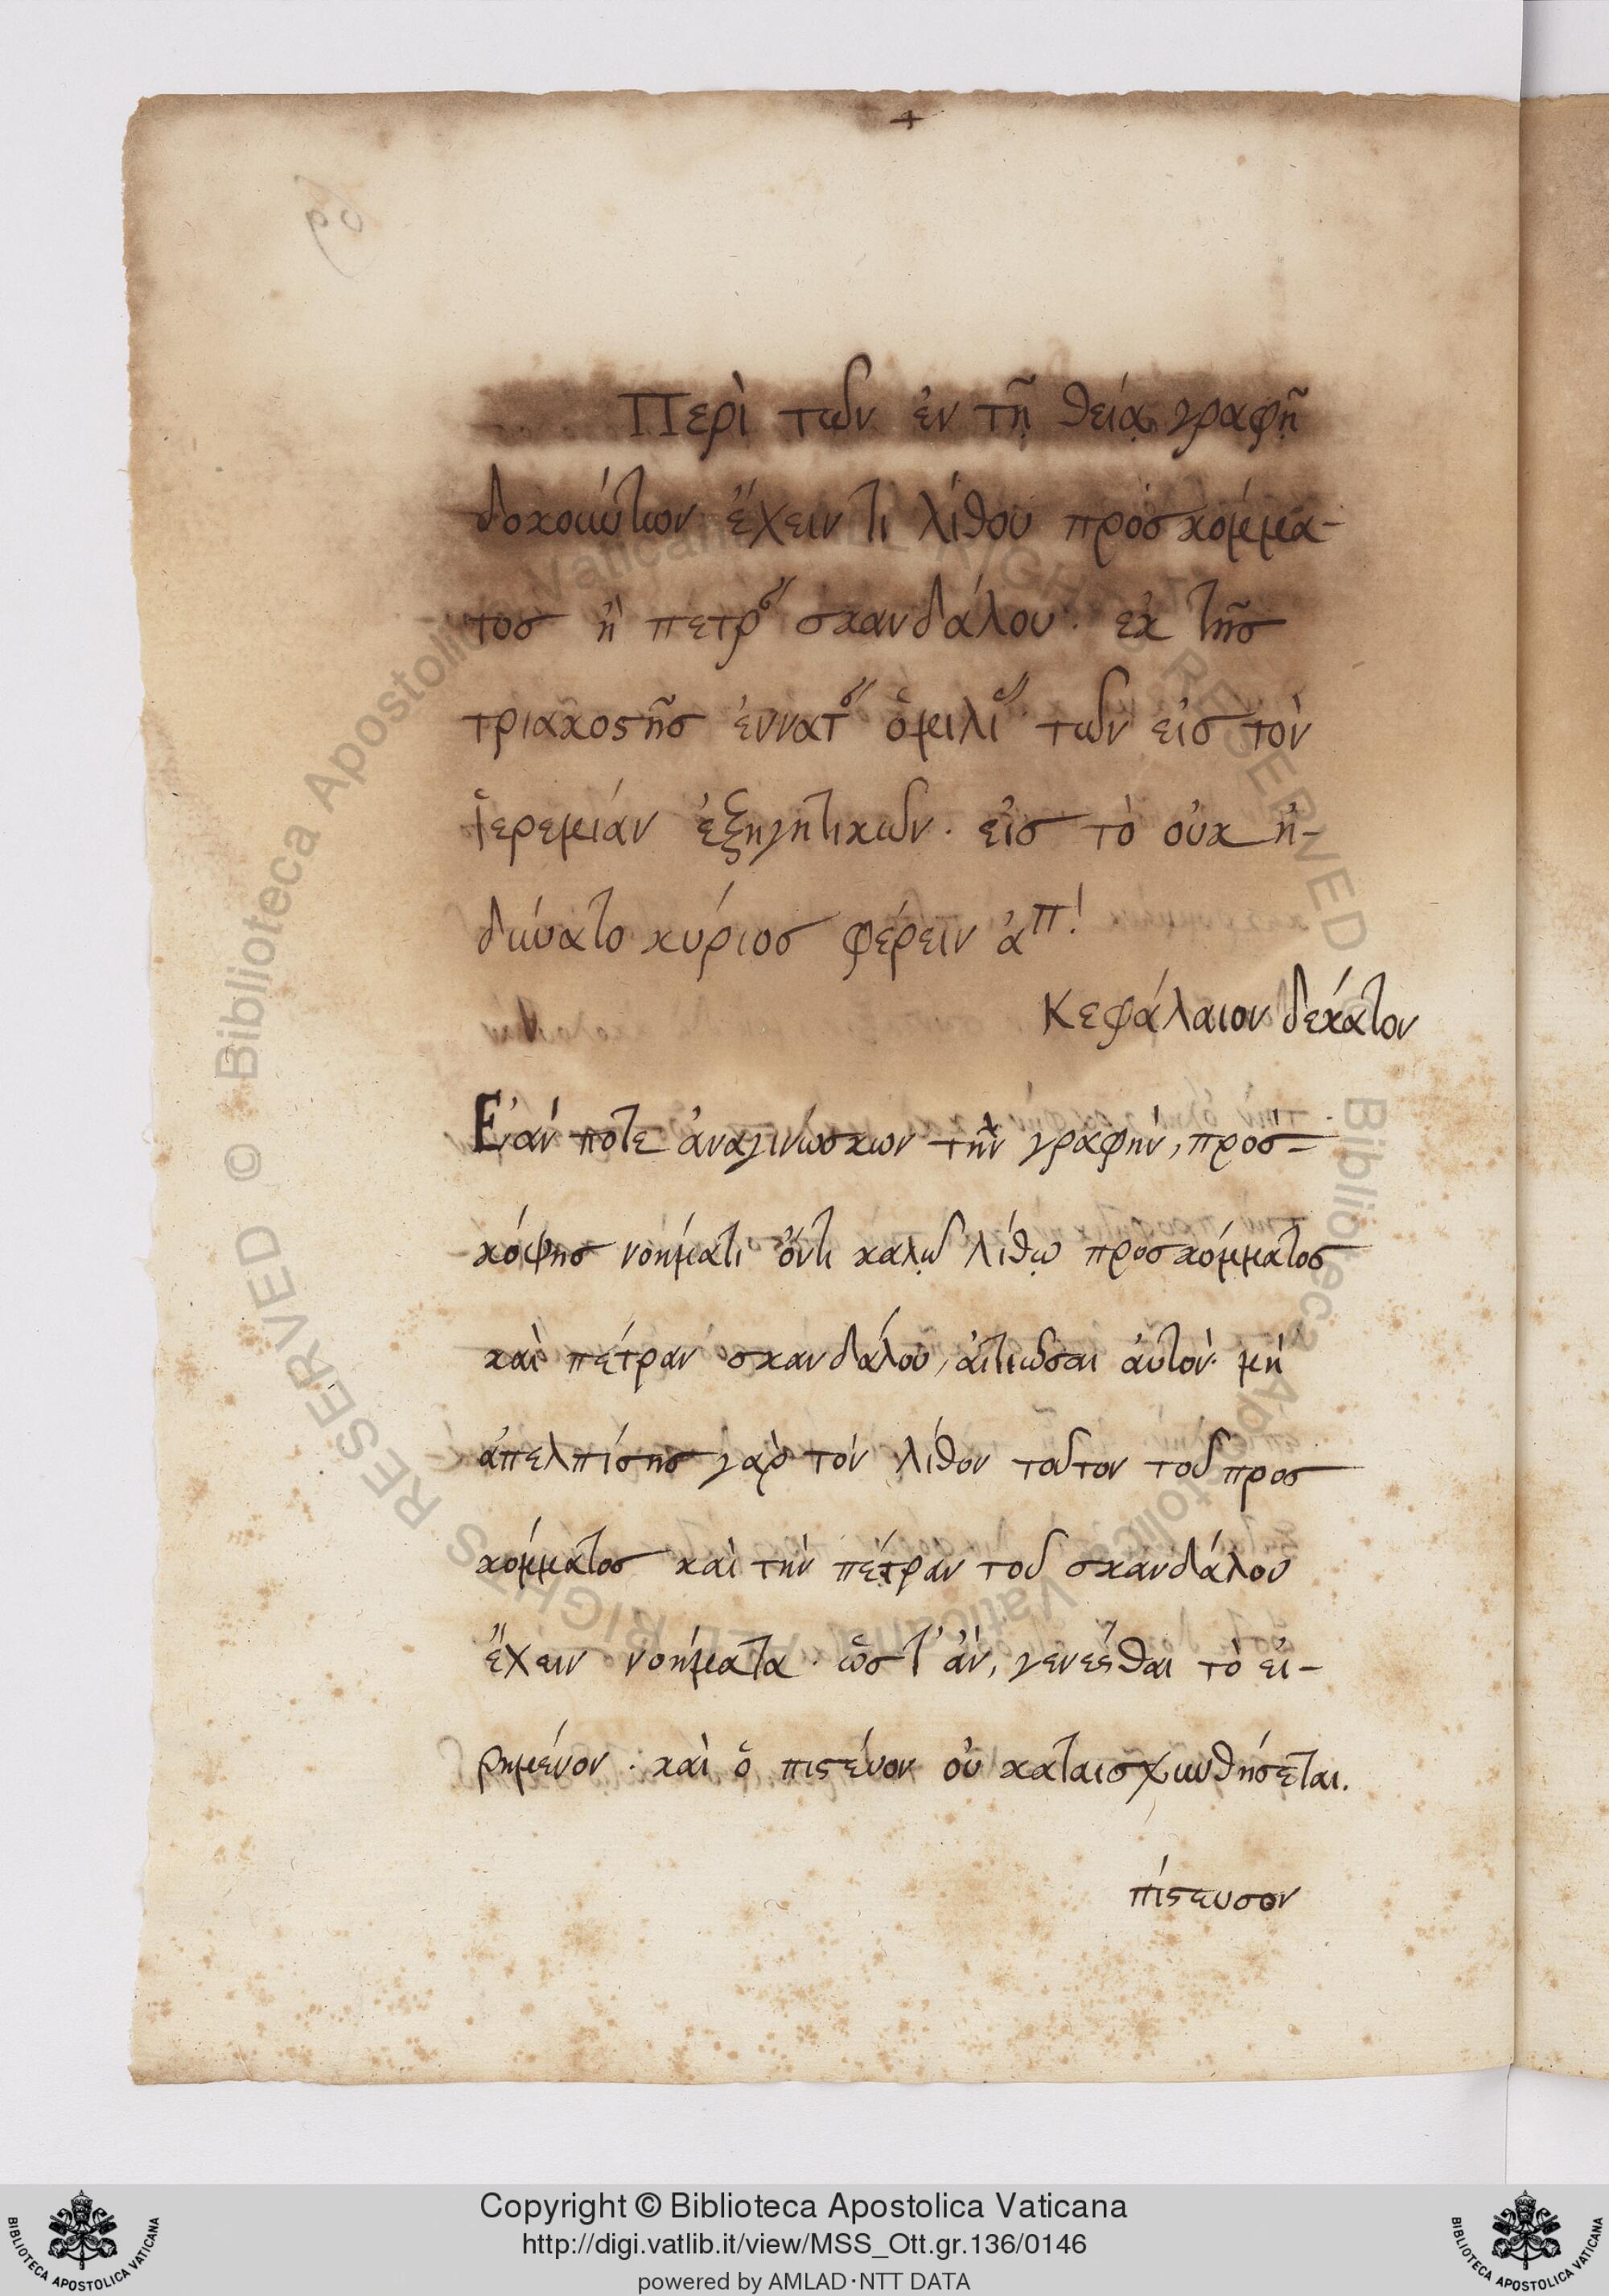 +
Περὶ τῶν ἐν τῇ θείᾳ γραφῇ
δοκούντων ἔχειν τι λίθου πρόσκόμμα-
τος ἢ πετρ σκανδάλου· ἐκ τῆς
τριακοστῆς ἐννατ ὁμιλι τῶν εἰς τὸν
ἱερεμίαν ἐξηγητικῶν· εἰς τὸ οὐκ ἠ-
δύνατο κύριος φέρειν ἀπ
Κεφάλαιον δέκατον
Ἐάν ποτε ἀναγινώσκων τὴν γραφὴν, προσ-
κόψης νοήματι ὄντι καλῷ λίθῳ προσκόμματος
καὶ πέτραν σκανδάλου, ἀιτιῶσαι ἀυτόν· μὴ
ἀπελπίσης γὰρ τὸν λίθον τοῦτον τοῦ προς
κόμματος καὶ τὴν πέτραν τοῦ σκανδάλου
ἔχειν νοήματα· ὥστ' ἂν, γενέσθαι τὸ εἰ-
ρημένον· καὶ ὁ πιστεύον οὐ καταισχυνθήσεται.
πίστευσον
© Biblioteca Apostolica Vaticana ALL RIGHTS RESERVED
© Biblioteca Apostolica Vaticana ALL RIGHTS RESERVED
BIBLIOTECA APOSTOLICA VATICANA
Copyright © Biblioteca Apostolica Vaticana
http://digi.vatlib.it/view/MSS_Ott.gr.136/0146
powered by AMLAD·NTT DATA
BIBLIOTECA APOSTOLICA VATICANA